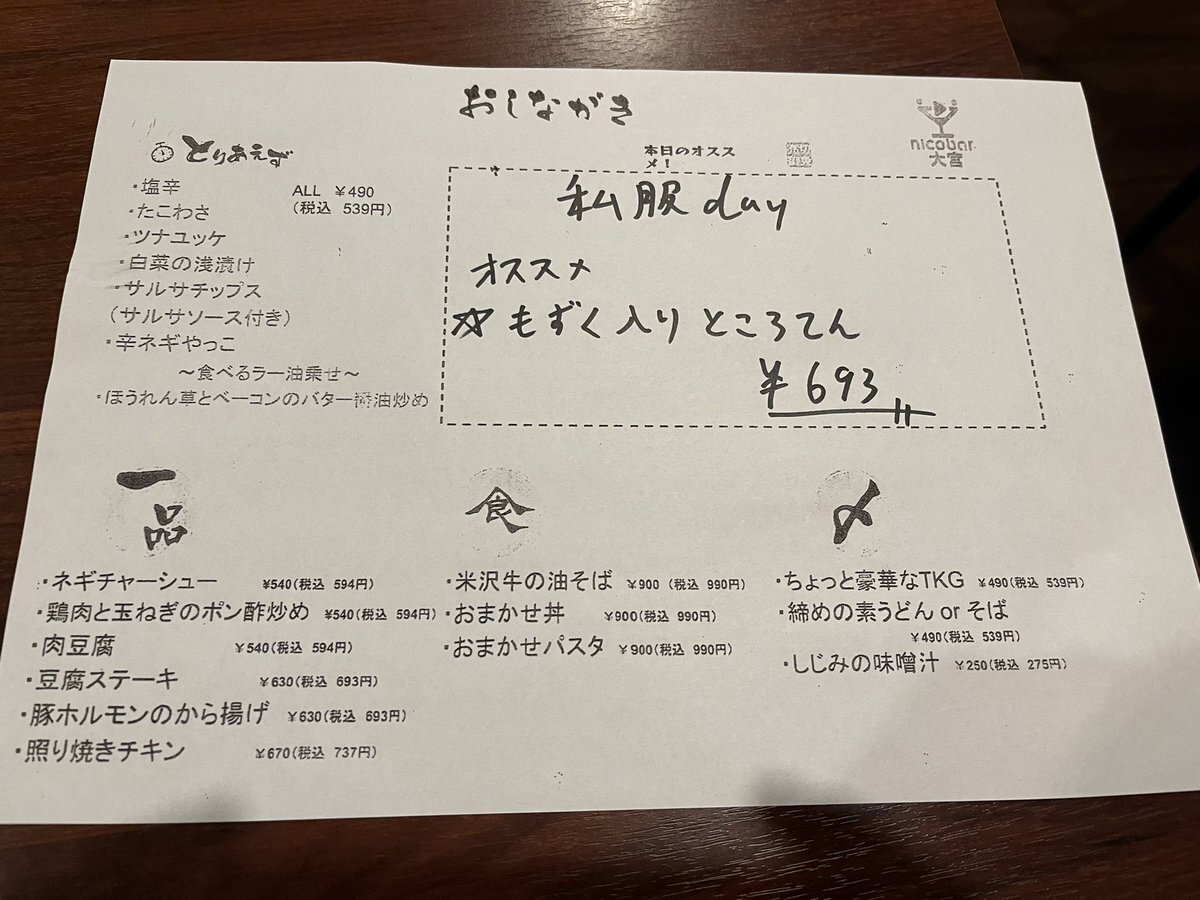 おしながき
nicobar
大宮
とりあえず
・塩辛
ALL ¥490
(税込 539円)
・たこわさ
・ツナユッケ
・白菜の浅漬け
・サルサチップス
(サルサソース付き)
・辛ネギやっこ
～食べるラー油乗せ～
・ほうれん草とベーコンのバター醤油炒め
本日のオスス
メ！
私服day
オススメ
☆もずく入りところてん
¥693
一品
・ネギチャーシュー ¥540(税込 594円)
・鶏肉と玉ねぎのポン酢炒め ¥540(税込 594円)
・肉豆腐 ¥540(税込 594円)
・豆腐ステーキ ¥630(税込 693円)
・豚ホルモンのから揚げ ¥630(税込 693円)
・照り焼きチキン ¥670(税込 737円)
食
・米沢牛の油そば ¥900 (税込 990円)
・おまかせ丼 ¥900(税込 990円)
・おまかせパスタ ¥900(税込 990円)
〆
・ちょっと豪華なTKG ¥490(税込 539円)
・締めの素うどん or そば
¥490(税込 539円)
・しじみの味噌汁 ¥250(税込 275円)